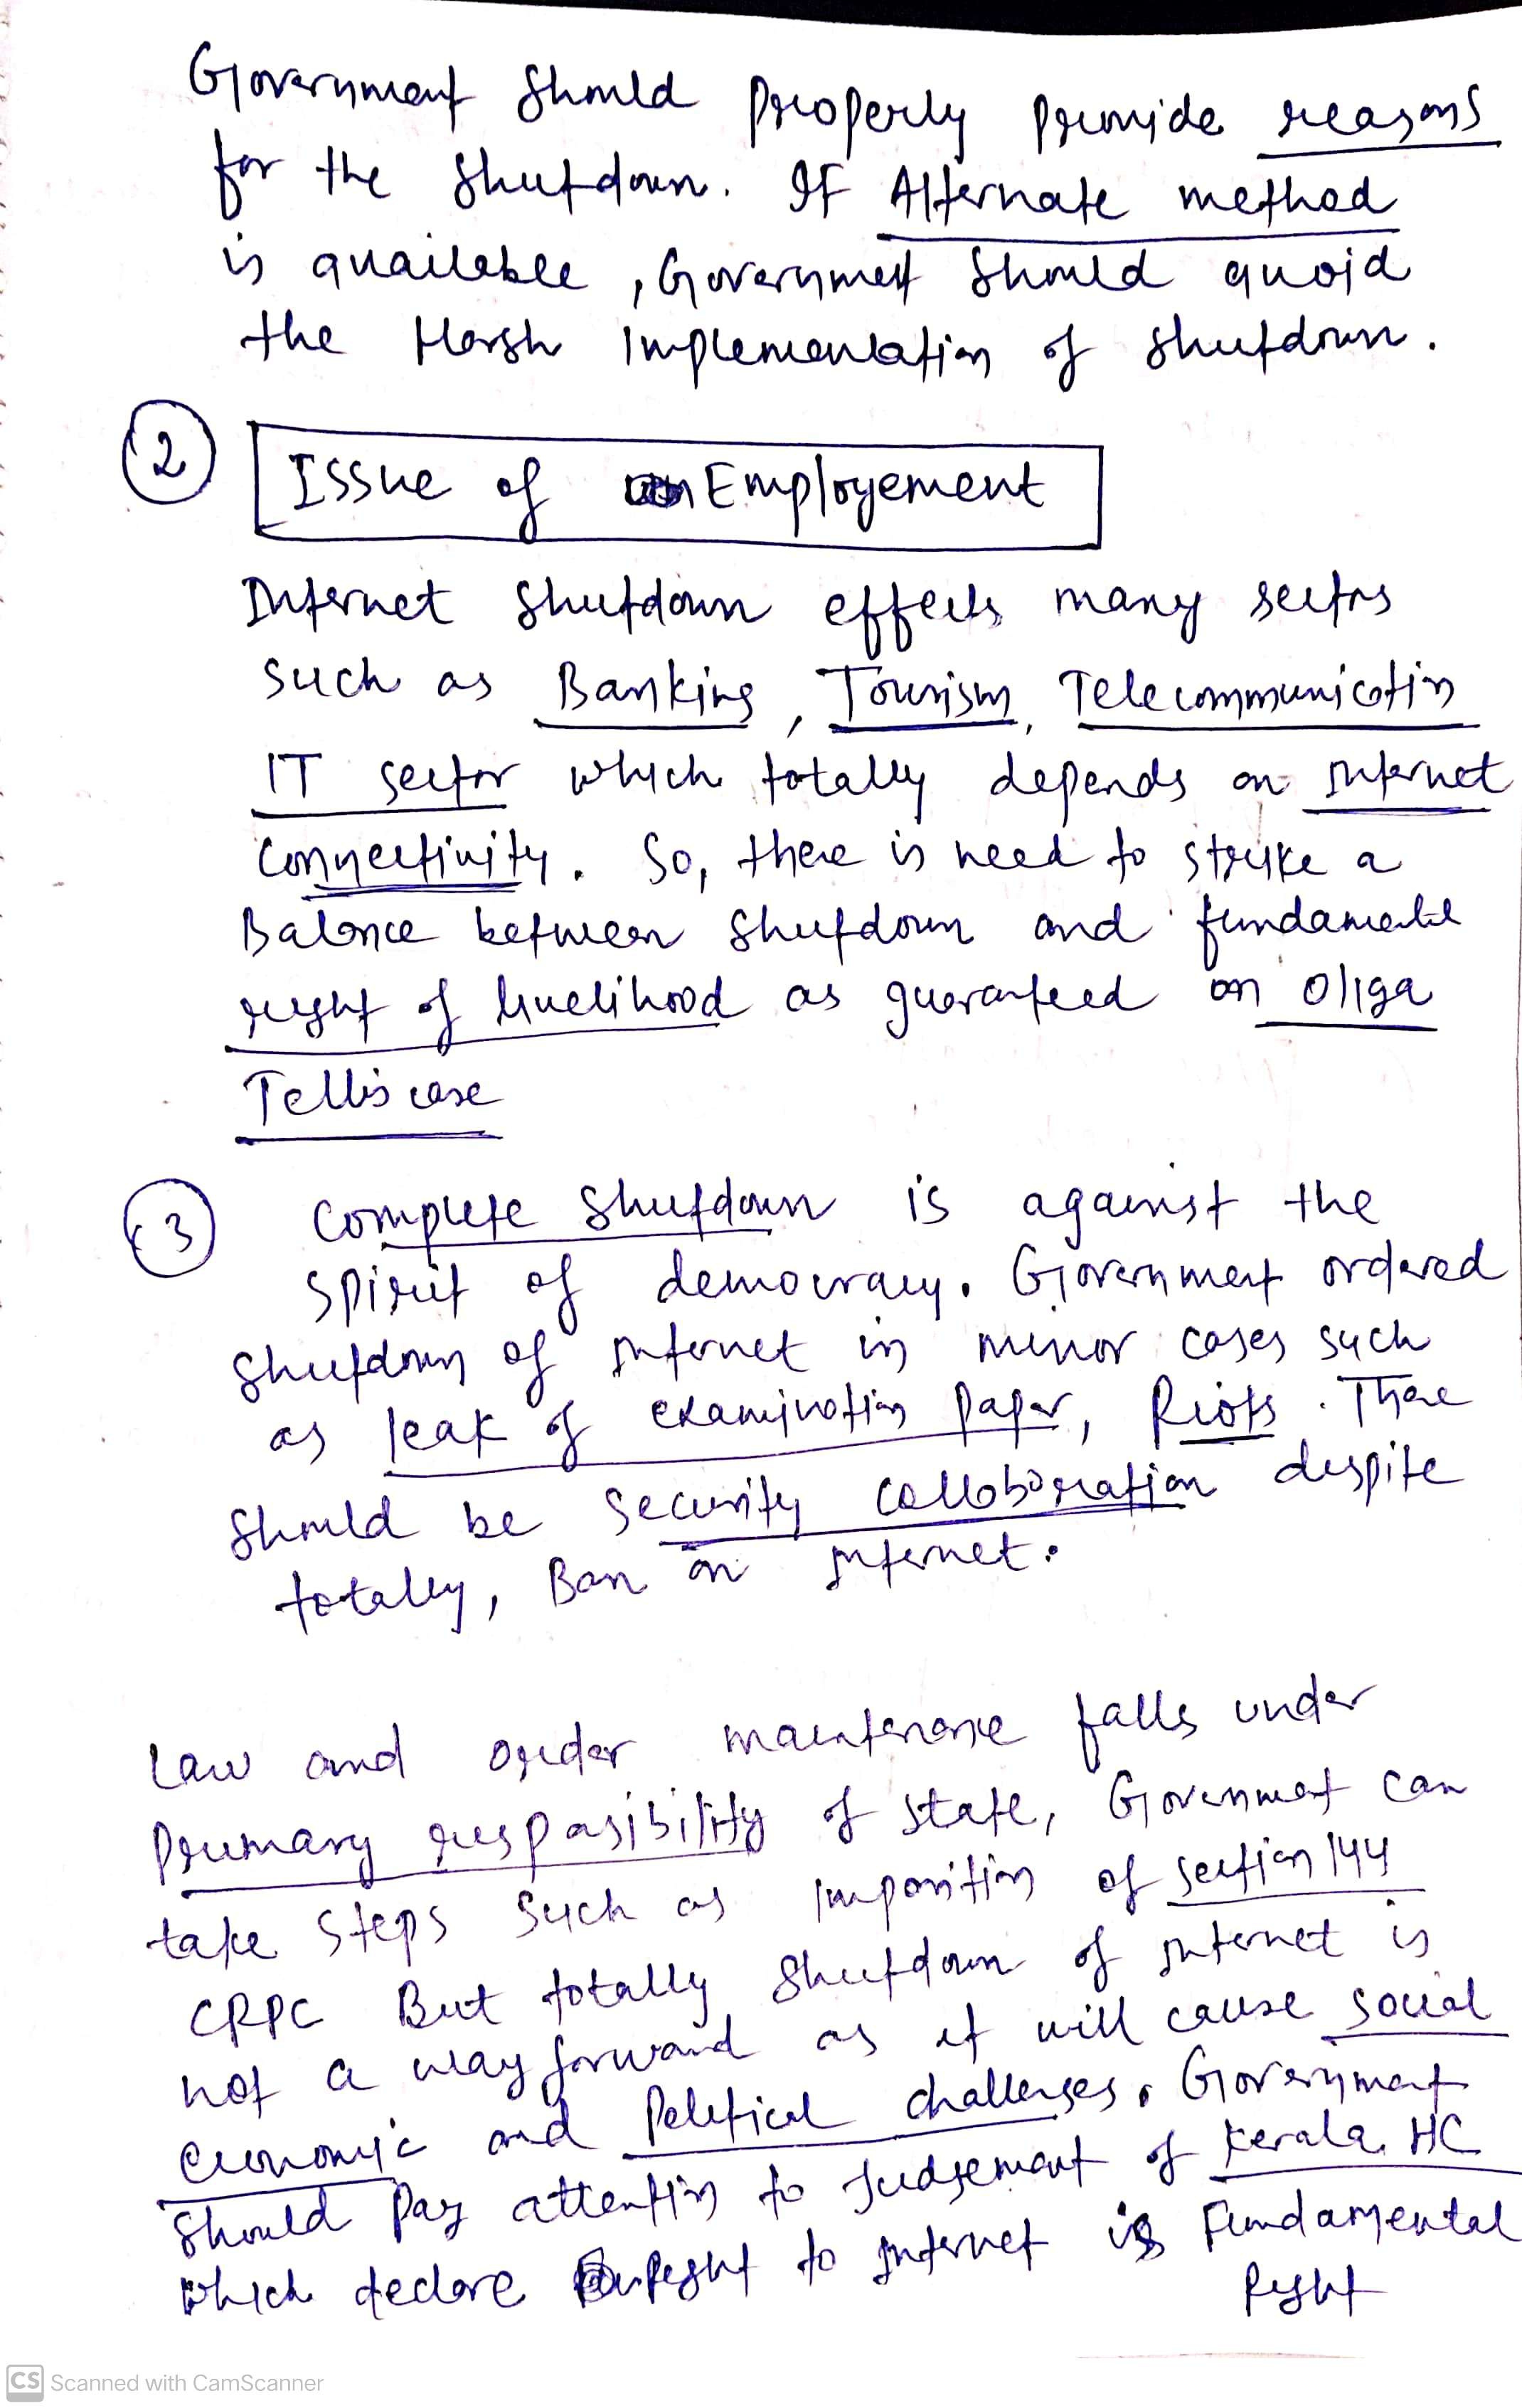 Government should properly provide reasons
for the shutdown. If Alternate method
is available, Government should avoid
the Harsh Implementation of shutdown.
2 Issue of Employement
Internet shutdown effects many sectors
such as Banking, Tourism, Telecommunication
IT sector which totally depends on internet
connectivity. So, there is need to strike a
Balance between shutdown and fundamental
right of livelihood as guaranteed on Olga
Tellis case
3 Complete shutdown is against the
spirit of democracy. Government ordered
shutdown of internet in minor cases such
as leak of examination paper, Riots. There
should be security colloboration despite
totally, Ban on internet.
Law and order maintenance falls under
Primary resposibility of state, Government can
take steps such as imposition of section 144
CRPC But totally shutdown of internet is
not a way forward as it will cause social
economic and Political challenges. Government
should pay attention to Judgement of Kerala HC
which declare Right to internet is Fundamental
Right
CS Scanned with CamScanner